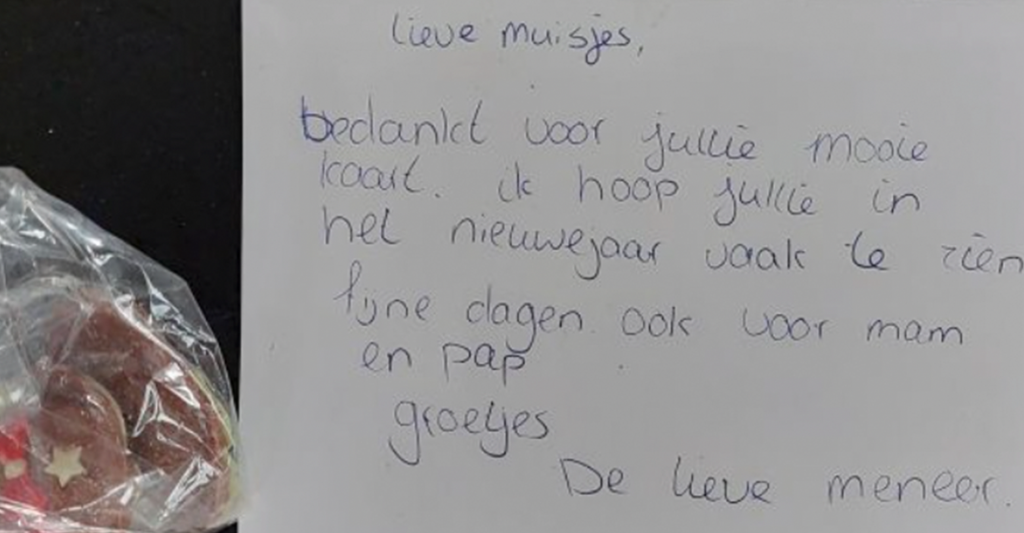 lieve muisjes,
bedankt voor jullie mooie
kaart. ik hoop jullie in
het nieuwejaar vaak te zien
fijne dagen. ook voor mam
en pap
groetjes
De lieve meneer.